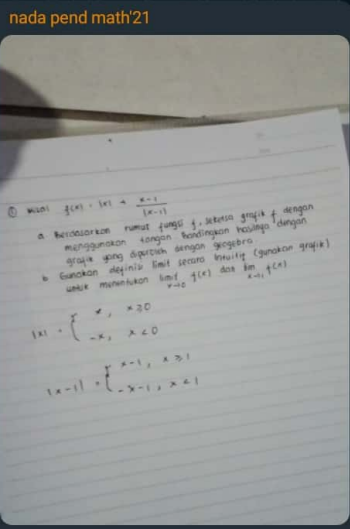 nada pend math'21
① Misal f(x) = |x| + x-1
|x-1|
a. Berdasarkan rumus fungsi f, sketsa grafik f dengan
menggunakan tangan. Bandingkan hasilnya dengan
grafik yang diperoleh dengan geogebra.
b. Gunakan definisi limit secara Intuitif (gunakan grafik)
untuk menentukan limit f(x) dan lim f(x)
x→0 x→1
|x| = { x, x≥0
-x, x<0
|x-1| = { x-1, x≥1
-x-1, x<1